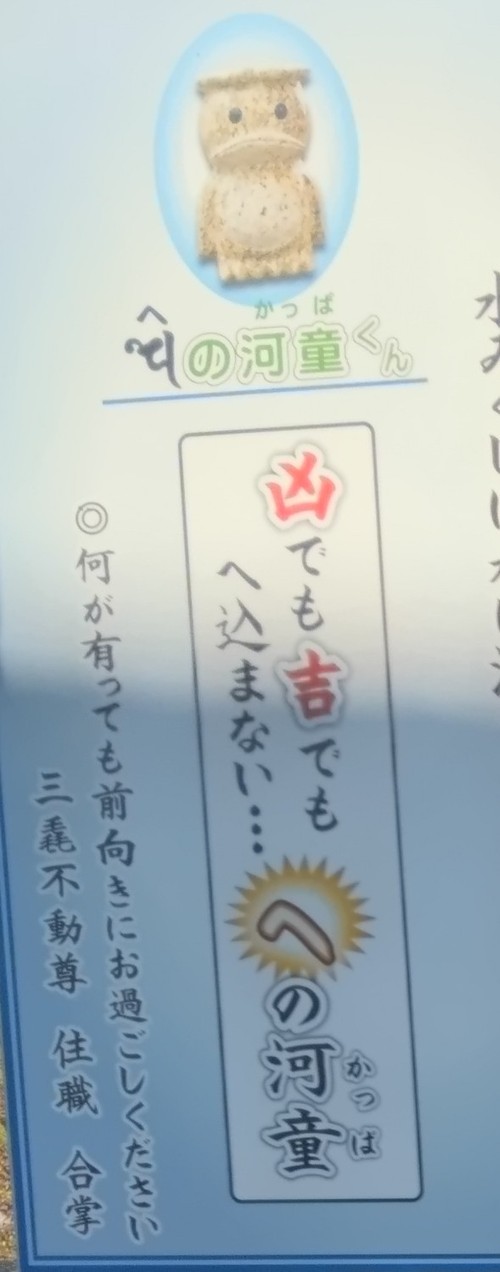 かっぱ
への河童くん
凶でも吉でも
へ込まない…
への河童
かっぱ
◎何が有っても前向きにお過ごしください
三毳不動尊 住職 合掌